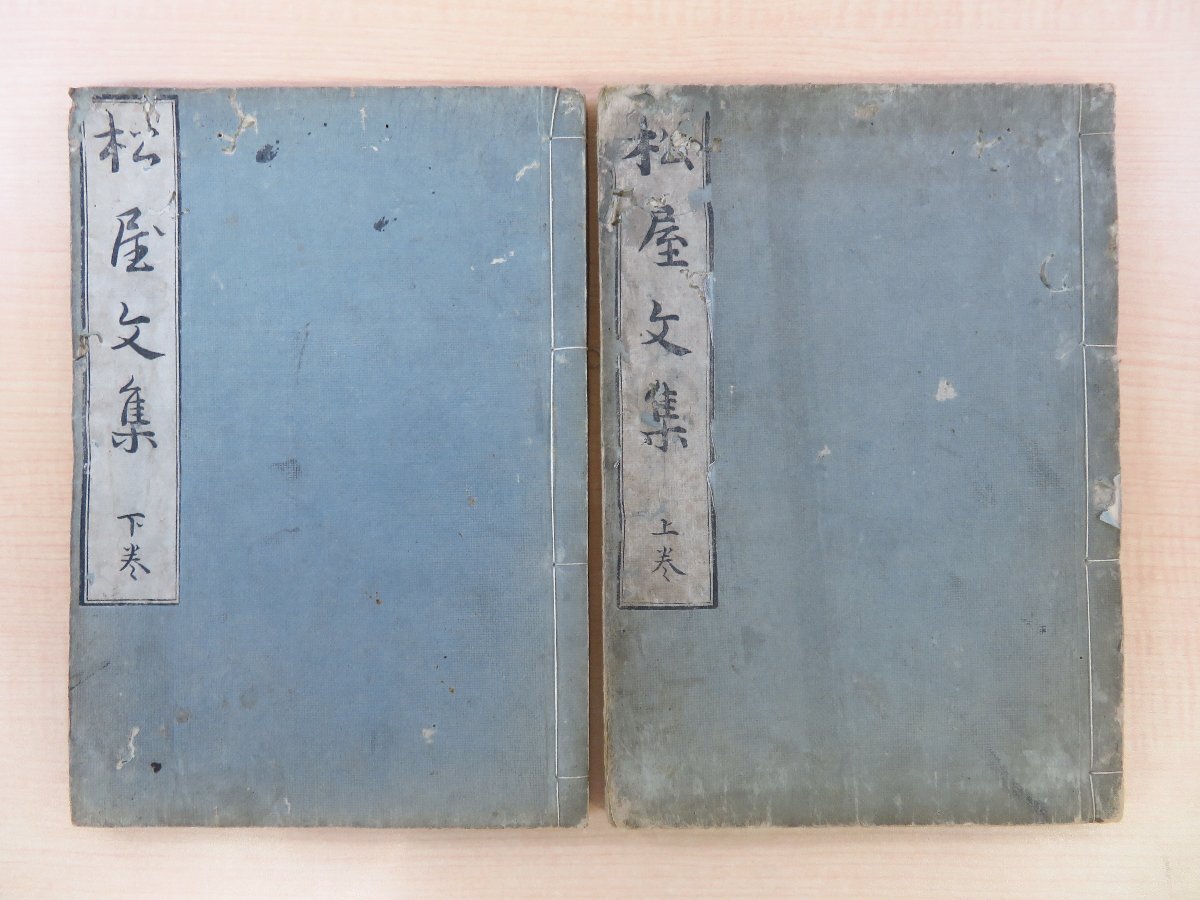 松屋文集 上巻
松屋文集 下巻